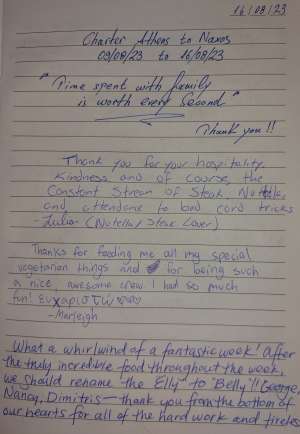 16/08/23
Charter Athens to Naxos
09/08/23 to 16/08/23
"Time spent with family
is worth every second"
Thank you!!
Thank you for your hospitality,
kindness and of course, the
Constant Stream of Steak, Nutella,
and attendance to bad card tricks
- Julian (Nutella/Steak Lover)
Thanks for feeding me all my special
vegetarian things and for being such
a nice, awesome crew! I had so much
fun! ευχαριστώ
- Marleigh
What a whirlwind of a fantastic week! After
the truly incredible food throughout the week,
we should rename the Elly to "Belly"!! George,
Nancy, Dimitris - thank you from the bottom of
our hearts for all of the hard work and tireless